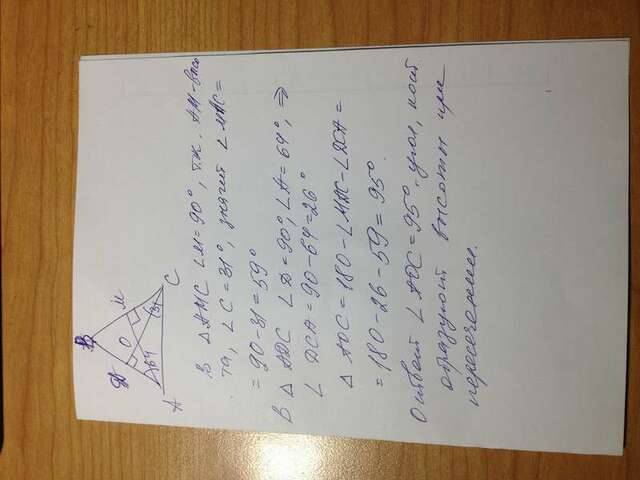 B
D
M
O
64
31
A
C
В △ AMC ∠M=90°, т.к. AM-высо
та, ∠C=31°, значит ∠MAC=
=90-31=59°
В △ ADC ∠D=90°, ∠A=64°, ⇒
∠ DCA=90-64=26°
△ AOC=180-∠MAC-∠DCA=
=180-26-59=95°.
Ответ ∠AOC=95°-угол, кот
образуют высоты при
пересечении.